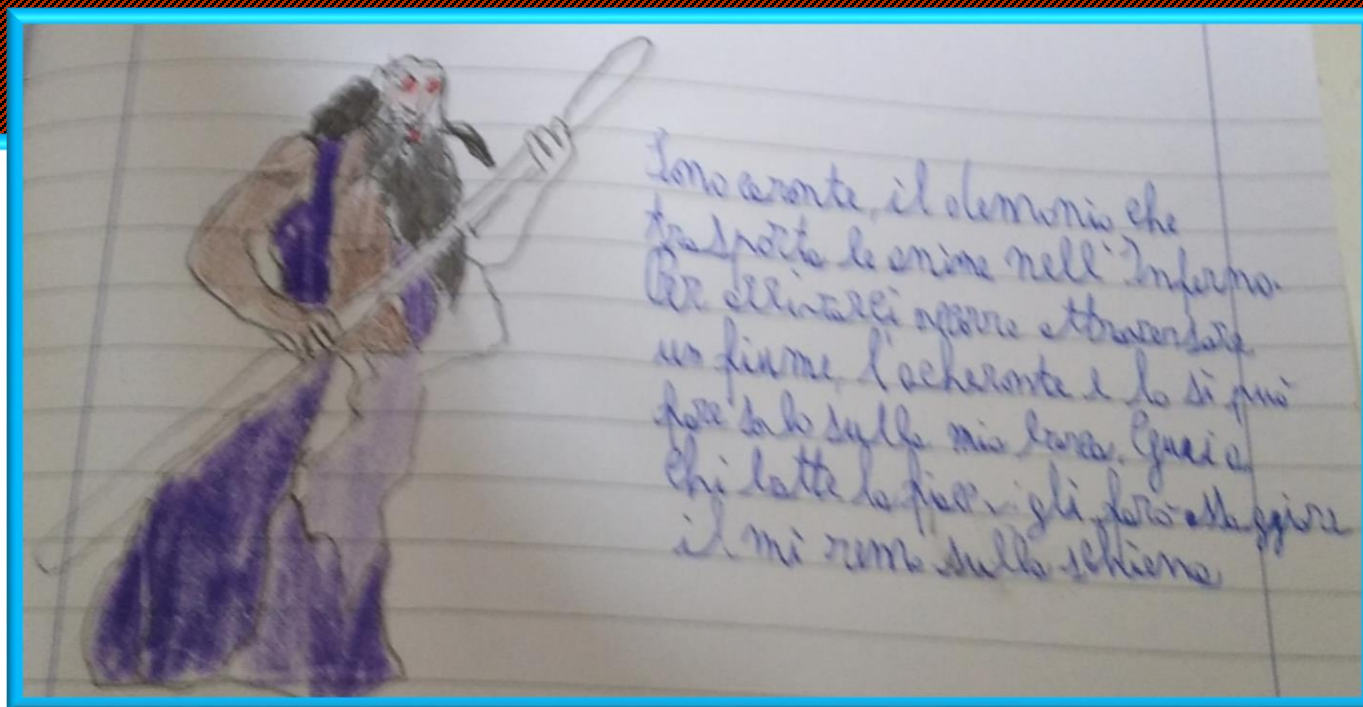 Sono caronte, il demonio che
trasporta le anime nell'Inferno.
Per arrivarci occorre attraversare
un fiume, l'acheronte e lo si può
fare solo sulla mia barca. Guai a
chi batte la fiacca, gli farò assaggiare
il mi remo sulla schiena